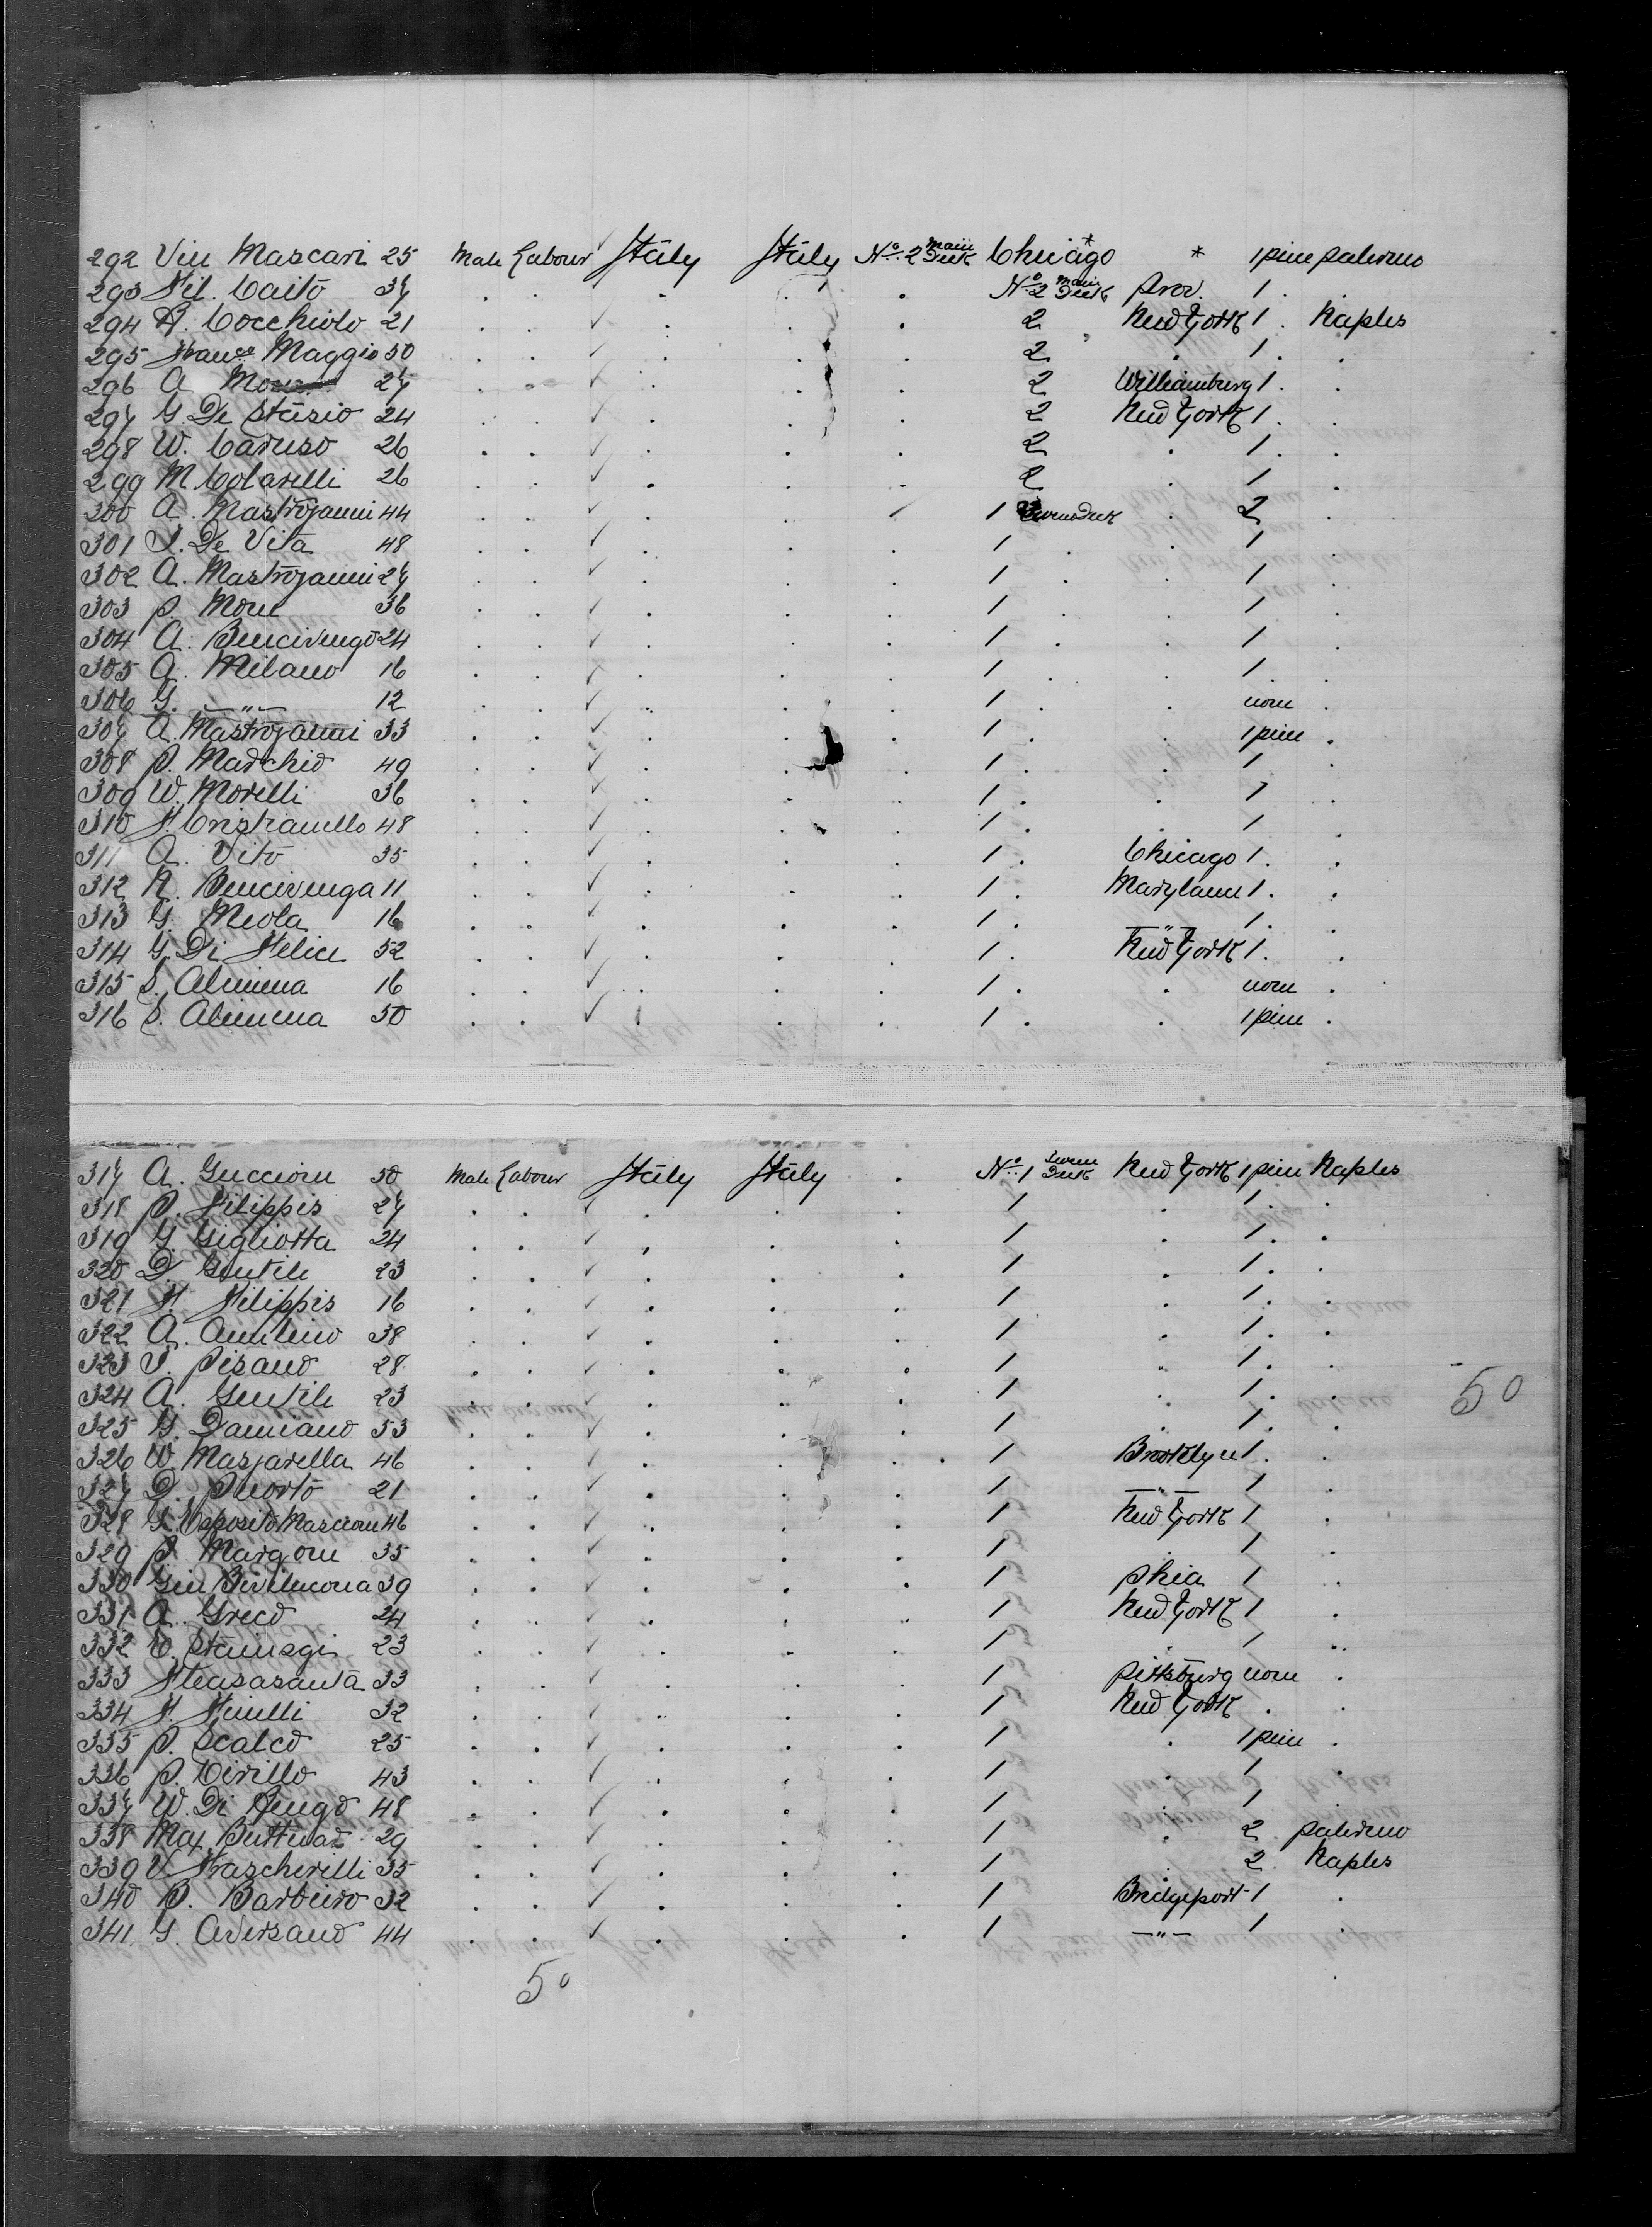 292 Vin Mascari 25 Male Labour ✓ Italy Italy No. 2 Main Deck Chicago * * 1 piece Palermo
293 Fil. Caito 37 . . . . . No. 2 Main Deck Prov. 1 . .
294 R. Cocchiolo 21 . . ✓ . . . 2 New York 1 . Naples
295 Franc Maggio 50 . . ✓ . . . 2 . 1 . .
296 A. 27 . . ✓ . . . 2 Williamburg 1 . .
297 G. De Stasio 24 . . ✓ . . . 2 New York 1 . .
298 W. Caruso 26 . . ✓ . . . 2 . 1 . .
299 M Colarelli 26 . . ✓ . . . 2 . 1 .
300 A. Mastrojanni 44 . . ✓ . . 1 Deck . 2 .
301 De Vita 48 . . ✓ . . . 1 . . 1 .
302 A. Mastrojanni 27 . . ✓ . . . 1 . . 1 .
303 P. Mone 36 . . ✓ . . . 1 . . 1 .
304 A. Bencivengo 24 . . ✓ . . . 1 . . 1 .
305 A. Milano 16 . . ✓ . . . 1 . . 1 .
306 G. —"— 12 . . ✓ . . . 1 . . none .
307 A. Mastrojanni 33 . . ✓ . . . 1 . . 1 piece .
308 P. Madchio 49 . . ✓ . . . 1 . . 1 .
309 W. Morelli 36 . . ✓ . . . 1 . . 1 .
310 F. Cristianello 48 . . ✓ . . . 1 . . 1 .
311 A. Vito 35 . . ✓ . . . 1 . Chicago 1 . .
312 N. Bencivenga 11 . . ✓ . . . 1 . Maryland 1 . .
313 G. Meola 16 . . ✓ . . . 1 . —"— 1 . .
314 G. Di Felice 52 . . ✓ . . . 1 . New York 1 . .
315 S. Alimena 16 . . ✓ . . . 1 . . none .
316 S. Alimena 50 . . ✓ . . . 1 . . 1 piece .
317 A. Guccione 50 Male Labour Italy Italy . No. 1 Deck New York 1 piece Naples
318 P. Filippis 27 . . ✓ . . . 1 . 1 . .
319 G. Gigliotta 24 . . ✓ . . . 1 . 1 . .
320 D. Gentile 23 . . ✓ . . . 1 . 1 . .
321 F. Filippis 16 . . ✓ . . . 1 . 1 . .
322 A. 38 . . ✓ . . . 1 . 1 . .
323 Pisano 28 . . ✓ . . . 1 . 1 . .
324 A. Gentile 23 . . ✓ . . . 1 . 1 . .
50
325 G. Damiano 53 . . ✓ . . . 1 . 1 . .
326 W. Masjarella 46 . . ✓ . . . 1 Brooklyn 1 . .
327 D. Puorto 21 . . ✓ . . . 1 —"— 1 .
328 G. Esposito Mascione 46 . . ✓ . . . 1 New York 1 .
329 P. Margone 35 . . ✓ . . . 1 . 1 .
330 Gen 39 . . ✓ . . . 1 Phia 1 .
331 A. Greco 24 . . ✓ . . . 1 New York 1 .
332 23 . . ✓ . . . 1 . 1 .
333 33 . . ✓ . . . 1 Pittsburg none .
334 F. Finelli 32 . . ✓ . . . 1 New York . .
335 P. Scalco 25 . . ✓ . . . 1 . 1 piece .
336 P. Cirillo 43 . . ✓ . . . 1 . 1 .
337 W. Di Rengo 48 . . ✓ . . . 1 . 1 .
338 29 . . ✓ . . . 1 . 2 Palermo
339 V. Frascherilli 35 . . ✓ . . . 1 . 2 Naples
340 B. Barbiero 32 . . ✓ . . . 1 Bridgeport 1 .
341 G. Aversano 44 . . ✓ . . . 1 —"— 1 .
50